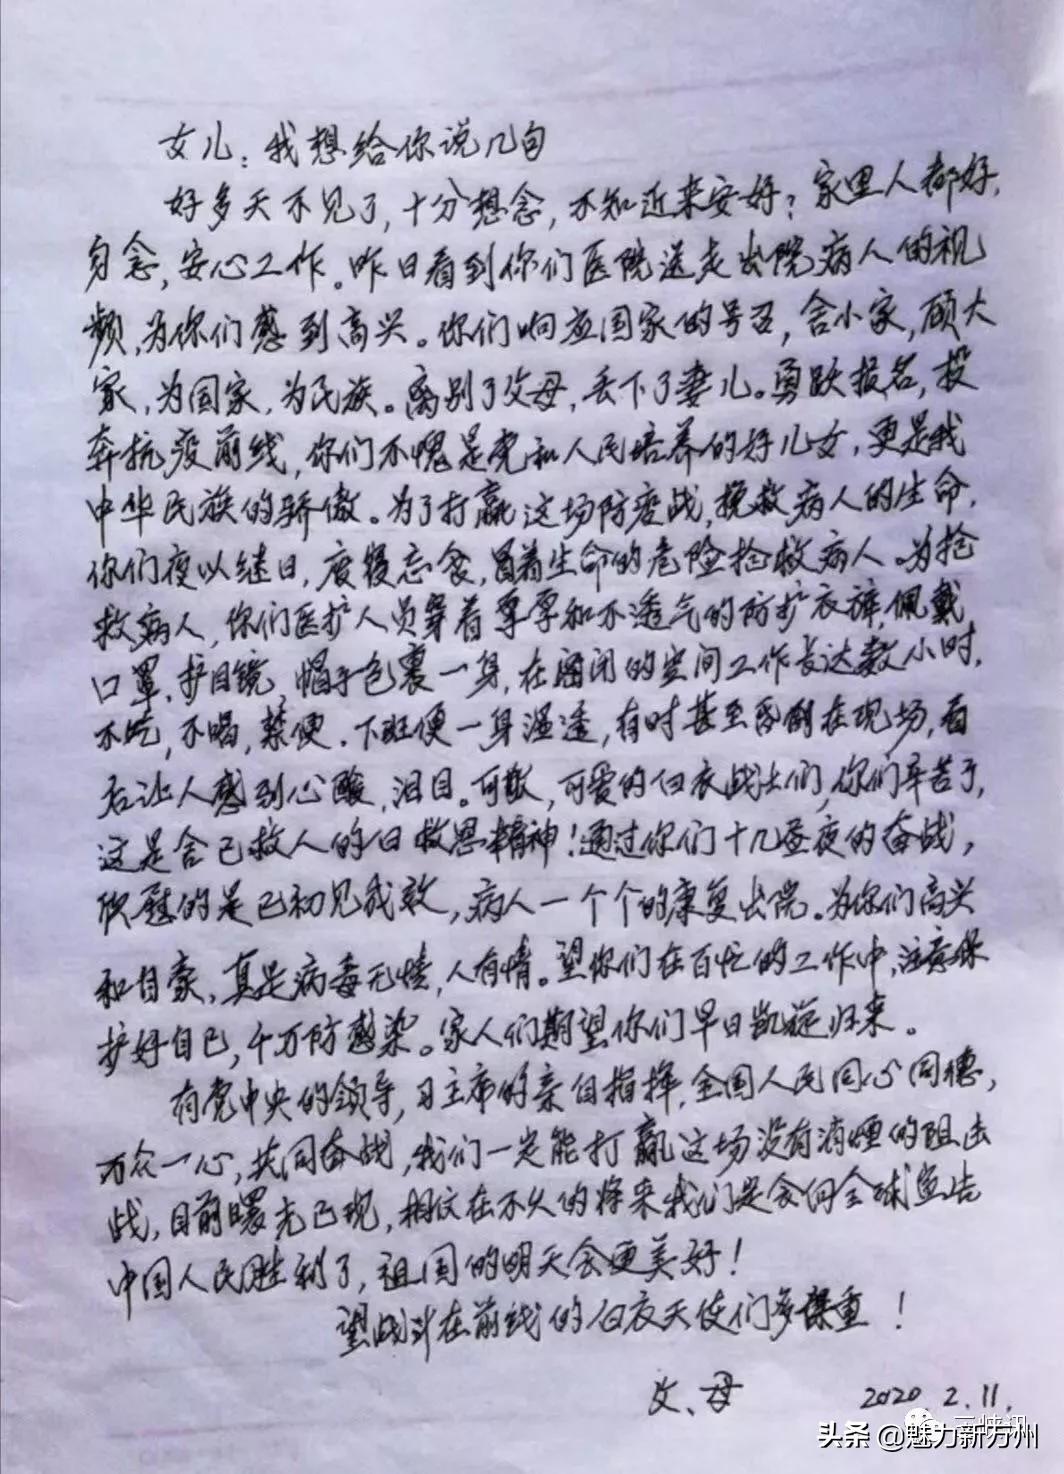 女儿：我想给你说几句
好多天不见了，十分想念，不知近来安好？家里人都好，
勿念，安心工作。昨日看到你们医院送走出院病人的视
频，为你们感到高兴。你们响应国家的号召，舍小家，顾大
家，为国家，为民族。离别了父母，丢下了妻儿。勇跃报名，投
奔抗疫前线，你们不愧是党和人民培养的好儿女，更是我
中华民族的骄傲。为了打赢这场防疫战，挽救病人的生命，
你们夜以继日，废寝忘食，冒着生命的危险抢救病人。为抢
救病人，你们医护人员穿着厚和不透气的防护衣裤，佩戴
口罩、护目镜，帽子包裹一身，在密闭的空间工作长达数小时，
不吃，不喝，禁便．下班便一身湿透，有时甚至昏倒在现场，看
后让人感到心酸，泪目。可敬，可爱的白衣战士们，你们辛苦了，
这是舍己救人的白救恩精神！通过你们十几昼夜的奋战，
欣慰的是已初见成效，病人一个个的康复出院。为你们高兴
和自豪，真是病毒无情，人有情。望你们在百忙的工作中，注意保
护好自己，千万防感染。家人们期望你们早日凯旋归来。
有党中央的领导，习主席的亲自指挥，全国人民同心同德，
万众一心，共同奋战，我们一定能打赢这场没有消煙的阻击
战，目前曙光已现，相信在不久的将来我们是会向全球宣告
中国人民胜利了，祖国的明天会更美好！
望战斗在前线的白衣天使们多保重！
父、母 2020 2.11.
三峡讯
头条@魅力新万州